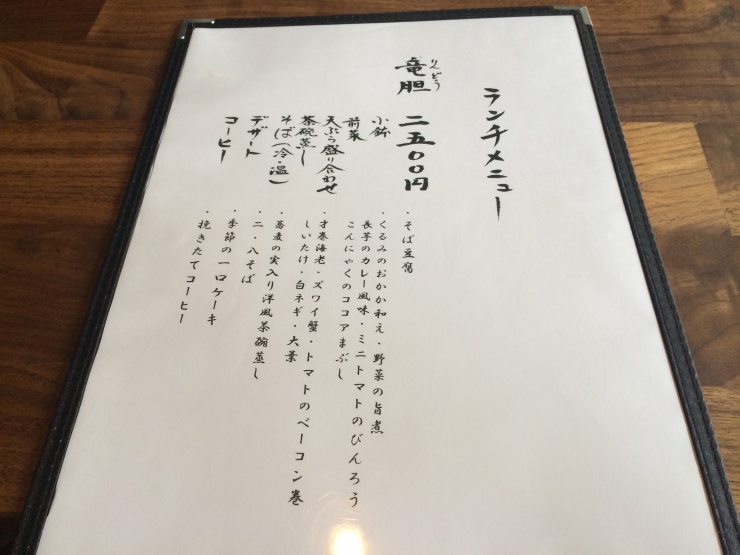 ランチメニュー
りんどう
竜胆 二五〇〇円
小鉢
前菜
天ぷら盛り合わせ
茶碗蒸し
そば(冷・温)
デザート
コーヒー
・そば豆腐
・くるみのおかか和え・野菜の旨煮
長芋のカレー風味・ミニトマトのびんろう
こんにゃくのココアまぶし
・才巻海老・ズワイ蟹・トマトのベーコン巻
しいたけ・白ネギ・大葉
・蕎麦の実入り洋風茶碗蒸し
・二・八そば
・季節の一口ケーキ
・挽きたてコーヒー